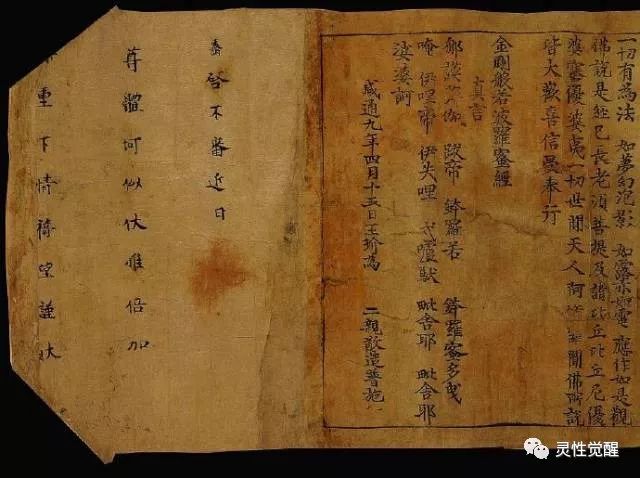 一切有為法 如夢幻泡影 如露亦如電 應作如是觀
佛說是經已長老須菩提及諸比丘比丘尼優
婆塞優婆夷一切世間天人阿修羅聞佛所說
皆大歡喜信受奉行
金剛般若波羅蜜經
真言
那謨伽跋帝 鉢羅若 鉢羅蜜多曳
唵 伊哩帝 伊失哩 戍嚧馱 毗舍耶 毗舍耶
娑婆訶
咸通九年四月十五日王玠為 二親敬造普施
啓不審近日
尊體何似伏惟倍加
重下情禱望謹狀
灵性觉醒